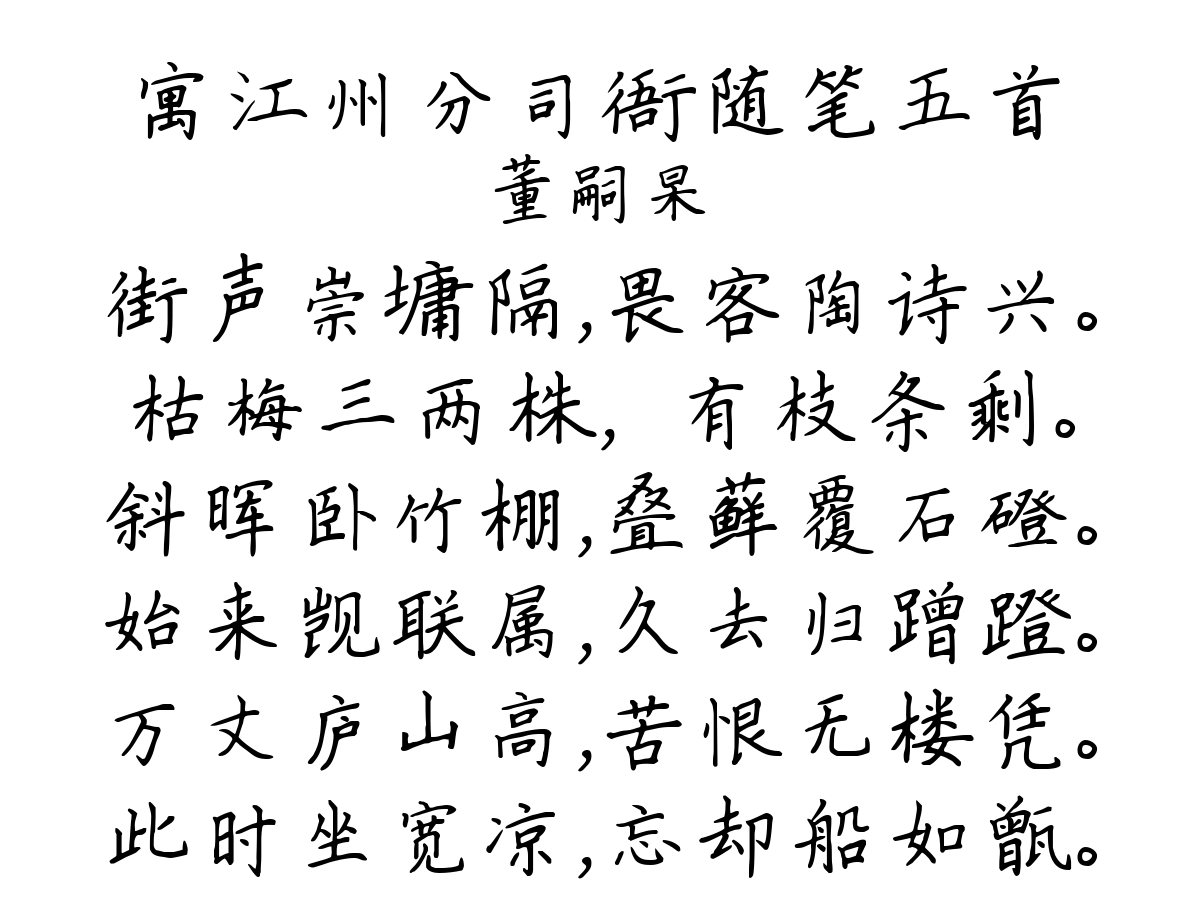 寓江州分司衙随笔五首
董嗣杲
街声崇墉隔,畏客陶诗兴。
枯梅三两株,有枝条剩。
斜晖卧竹棚,叠藓覆石磴。
始来觊联属,久去归蹭蹬。
万丈庐山高,苦恨无楼凭。
此时坐宽凉,忘却船如甑。